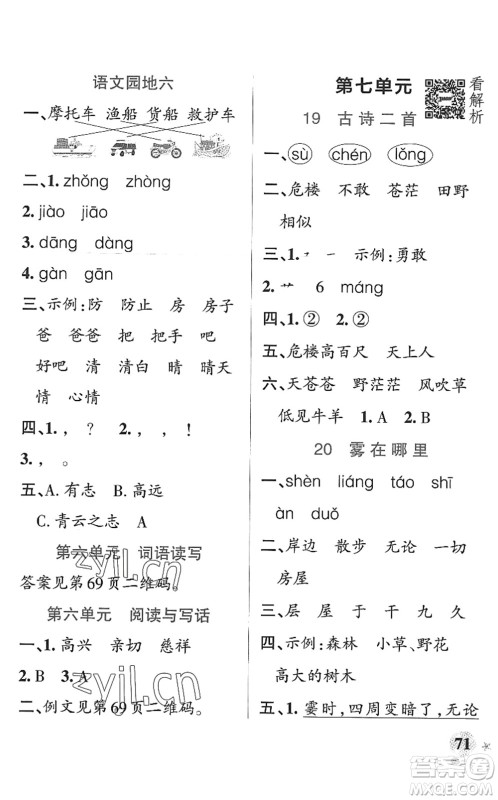 语文园地六
一、摩托车 渔船 货船 救护车
二、1. zhǒng zhòng
2. jiào jiāo
3. dāng dàng
4. gàn gān
三、示例:防 防止 房 房子
爸 爸爸 把 把手 吧
好吧 清 清楚 晴 晴天
情 心情
四、1. , ? 2. , 。
3. , 。
五、A. 有志 B. 高远
C. 青云之志 A
第六单元 词语读写
答案见第69页二维码。
第六单元 阅读与写话
一、1. 高兴 亲切 慈祥
2. B 3. A
二、例文见第69页二维码。
第七单元
看解析
19 古诗二首
一、sù chén lǒng
二、危楼 不敢 苍茫 田野
相似
三、1. 示例:勇敢
2. 艹 6 máng
四、1. ② 2. ②
五、危楼高百尺 天上人
六、天苍苍 野茫茫 风吹草
低见牛羊 1. A 2. B
20 雾在哪里
一、shèn liáng táo shī
àn duǒ
二、岸边 散步 无论 一切
房屋
三、层 屋 于 干 九 久
四、示例:森林 小草、野花
高大的树木
五、1. 霎时,四周变暗了,无论
71
zyjl.cn
zyjl.cn
答案圈